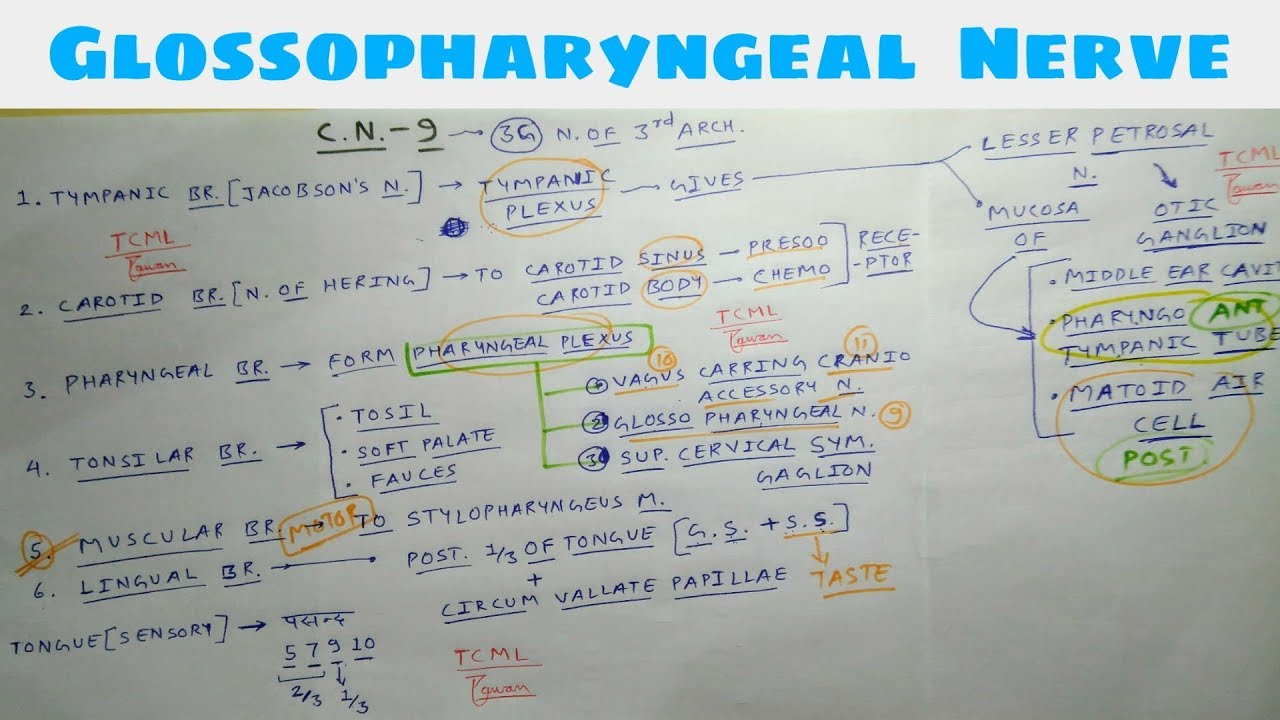 GLOSSOPHARYNGEAL NERVE
C.N.-9 → 3G N. OF 3rd ARCH.
1. TYMPANIC BR. [JACOBSON'S N.] → TYMPANIC PLEXUS → GIVES
LESSER PETROSAL N.
OTIC GANGLION
MUCOSA OF
• MIDDLE EAR CAVIT
• PHARYNGO TYMPANIC TUBE
ANT
• MATOID AIR CELL
POST.
TCML
TCML
2. CAROTID BR. [N. OF HERING] → TO CAROTID SINUS → PRESOO
CAROTID BODY → CHEMO
RECE-
-PTOR
TCML
3. PHARYNGEAL BR. → FORM PHARYNGEAL PLEXUS
① VAGUS CARRING CRANIO
10 11
ACCESSORY N.
② GLOSSO PHARYNGEAL N. 9
③ SUP. CERVICAL SYM.
GAGLION
4. TONSILAR BR. →
• TOSIL
• SOFT PALATE
• FAUCES
5. MUSCULAR BR. → TO STYLOPHARYNGEUS M.
MOTOR
6. LINGUAL BR. → POST. 1/3 OF TONGUE [G.S. + S.S.]
+
CIRCUM VALLATE PAPILLAE
TASTE
TONGUE [SENSORY] →
5 7 9 10
2/3 1/3
TCML